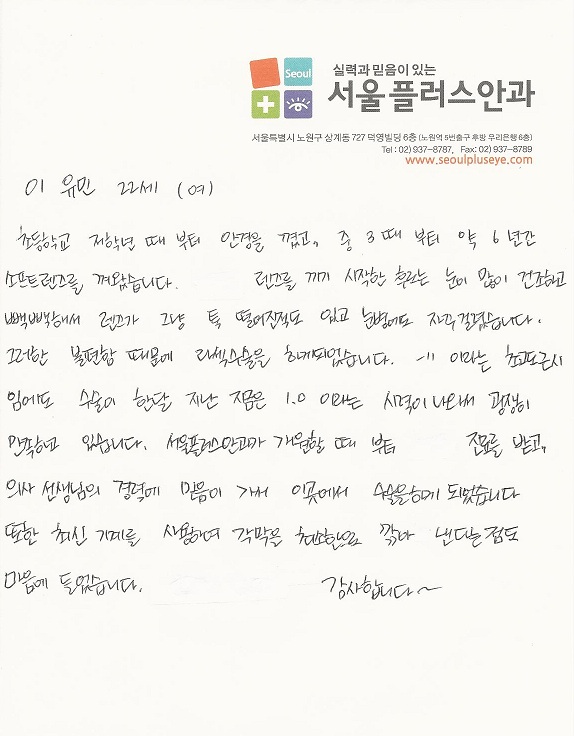 Seoul
실력과 믿음이 있는
서울플러스안과
서울특별시 노원구 상계동 727 덕영빌딩 6층 (노원역 5번출구 후방 우리은행 6층)
Tel : 02) 937-8787, Fax: 02) 937-8789
www.seoulpluseye.com
이 유민 22세 (여)
초등학교 저학년 때 부터 안경을 꼈고, 중 3 때 부터 약 6년간
소프트렌즈를 껴왔습니다. 렌즈를 끼기 시작한 후로는 눈이 많이 건조하고
빽빽해서 렌즈가 그냥 툭 떨어진적도 있고 눈병에도 자주걸렸습니다.
그러한 불편함 때문에 라섹수술을 하게되었습니다. -11 이라는 초고도근시
임에도 수술이 한달 지난 지금은 1.0 이라는 시력이 나와서 굉장히
만족하고 있습니다. 서울플러스안과가 개원할 때 부터 진료를 받고,
의사 선생님의 경력에 믿음이 가서 이곳에서 수술을하게 되었습니다
또한 최신 기계를 사용하여 각막을 최소한으로 깎아 낸다는점도
마음에 들었습니다. 감사합니다~